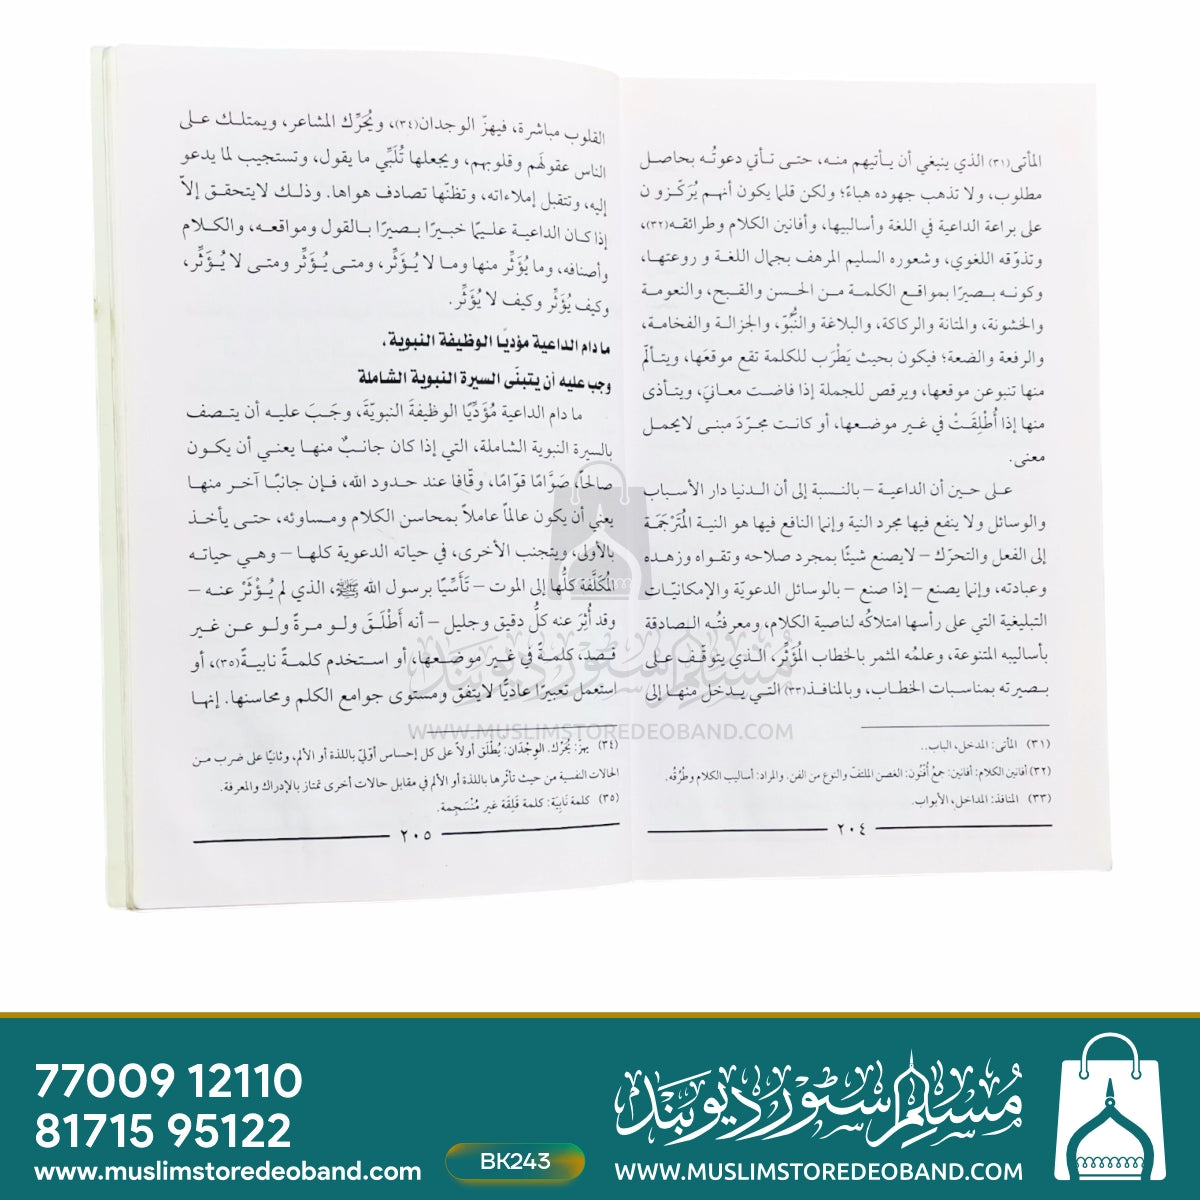 المأتى(٣١) الذي ينبغي أن يـأتيهم منـه، حتـى تـأتي دعوتُـه بحاصـل
مطلوب، ولا تذهب جهوده هباءً؛ ولكن قلما يكون أنهـم يُرَكّـزون
على براعة الداعية في اللغة وأساليبها، وأفانين الكلام وطرائقـه(٣٢)،
وتذوّقه اللغوي، وشعوره السليم المرهف بجمال اللغـة و روعتهـا،
وكونـه بـصيرًا بمواقـع الكلمـة مـن الحسن والقبـح، والنعومـة
والخشونة، والمتانة والركاكة، والبلاغة والنُّبُوّ، والجزالـة والفخامـة،
والرفعة والضعة؛ فيكون بحيث يَطْرَب للكلمة تقع موقعَها، ويتـألّم
منها تنبو عن موقعها، ويرقص للجملة إذا فاضت معانيَ، ويتـأذى
منها إذا أُطْلِقَتْ في غير موضعها، أو كانت مجرّدَ مبنى لايحمل
معنى.
علـى حين أن الداعيـة – بالنسبة إلى أن الـدنيا دار الأسباب
والوسائل ولا ينفع فيها مجرد النية وإنما النافع فيها هو النية المُتَرْجَمَة
إلى الفعل والتحرّك – لايصنع شيئًا بمجرد صلاحه وتقـواه وزهـده
وعبادته، وإنما يصنع – إذا صنع – بالوسائل الدعويّة والإمكانيّـات
التبليغية التي على رأسها امتلاكُه لناصية الكلام، ومعرفتُـه الـصادقة
بأساليبه المتنوعة، وعلمُه المثمر بالخطاب المُؤَثِّر، الـذي يتوقّـف علـى
بـصيرته بمناسبات الخطاب، وبالمنافذ(٣٣) التـي يـدخل منهـا إلى
(٣١) المأتى: المدخل، الباب..
(٣٢) أفانين الكلام: أفانين: جمعُ أُفْنُون: الغصن الملتفّ والنوع من الفن. والمراد: أساليب الكلام وطُرُقُه.
(٣٣) المنافذ: المداخل، الأبواب.
٢٠٤
القلوب مباشرة، فيهزّ الوجدان(٣٤)، ويُحَرِّك المشاعر، ويمتلـك علـى
الناس عقولَهم وقلوبهم، ويجعلها تُلَبِّي ما يقول، وتستجيب لما يدعو
إليه، وتتقبل إملاءاته، وتظنّها تصادف هواها. وذلـك لايتحقـق إلاّ
إذا كـان الداعيـة علـيمًا خبيرًا بـصيرًا بـالقول ومواقعـه، والكـلام
وأصنافه، وما يُؤَثِّر منها ومـا لا يُـؤَثِّر، ومتـى يُـؤَثِّر ومتى لا يُـؤَثِّر،
وكيف يُؤَثِّر وكيف لا يُؤَثِّر.
ما دام الداعية مؤديًا الوظيفة النبوية،
وجب عليه أن يتبنّى السيرة النبوية الشاملة
ما دام الداعية مُؤَدِّيًا الوظيفةَ النبويّةَ، وجَـبَ عليـه أن يتـصف
بالسيرة النبوية الشاملة، التي إذا كان جانـبٌ منهـا يعنـي أن يكـون
صالحاً، صَوَّامًا قوّامًا، وقّافا عند حدود الله، فـإن جانبًـا آخـر منهـا
يعني أن يكون عالماً عاملاً بمحاسن الكلام ومـساوئه، حتـى يأخـذ
بالأولى، ويتجنب الأخرى، في حياته الدعوية كلهـا – وهـي حياتـه
المُكَلَّفة كلُّها إلى الموت – تَأَسِّيًا برسول الله ﷺ، الذي لم يُـؤْثَرْ عنـه –
وقد أُثِرَ عنه كلُّ دقيق وجليل – أنه أَطْلَـقَ ولـو مـرةً ولـو عـن غير
قـصد، كلمـةً في غير موضـعها، أو استخدم كلمـةً نابيـةً(٣٥)، أو
استعمل تعبيرًا عاديًّا لايتفق ومستوى جوامع الكلم ومحاسنها. إنهـا
(٣٤) يهزّ: يُحَرِّك. الوِجْدَان: يُطْلَق أولاً على كل إحساس أوّليّ باللذة أو الألم، وثانيًا على ضرب مـن
الحالات النفسية من حيث تأثرها باللذة أو الألم في مقابل حالات أخرى تمتاز بالإدراك والمعرفة.
(٣٥) كلمة نَابِيَة: كلمة قَلِقَة غير مُنْسَجِمة.
٢٠٥
مسلم سٹور دیوبند
WWW.MUSLIMSTOREDEOBAND.COM
77009 12110
81715 95122
www.muslimstoredeoband.com
BK243
مسلم سٹور دیوبند
WWW.MUSLIMSTOREDEOBAND.COM